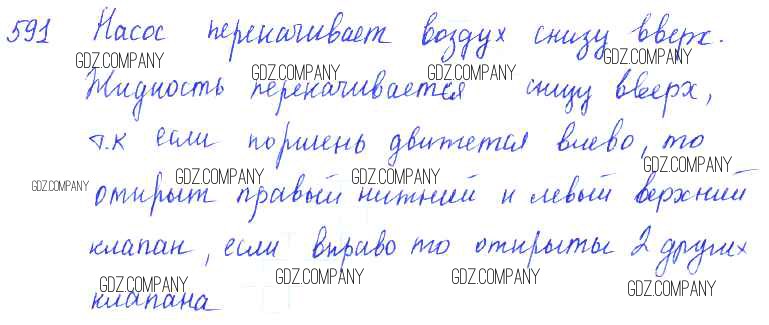 591 Насос перекачивает воздух снизу вверх.
GDZ.COMPANY GDZ.COMPANY GDZ.COMPANY GDZ.COMPANY
Жидкость перекачивается снизу вверх,
т.к если поршень движется влево, то
GDZ.COMPANY GDZ.COMPANY GDZ.COMPANY GDZ.COMPANY
открыт правый нижний и левый верхний
клапан, если вправо то открыты 2 других
GDZ.COMPANY GDZ.COMPANY GDZ.COMPANY GDZ.COMPANY
клапана